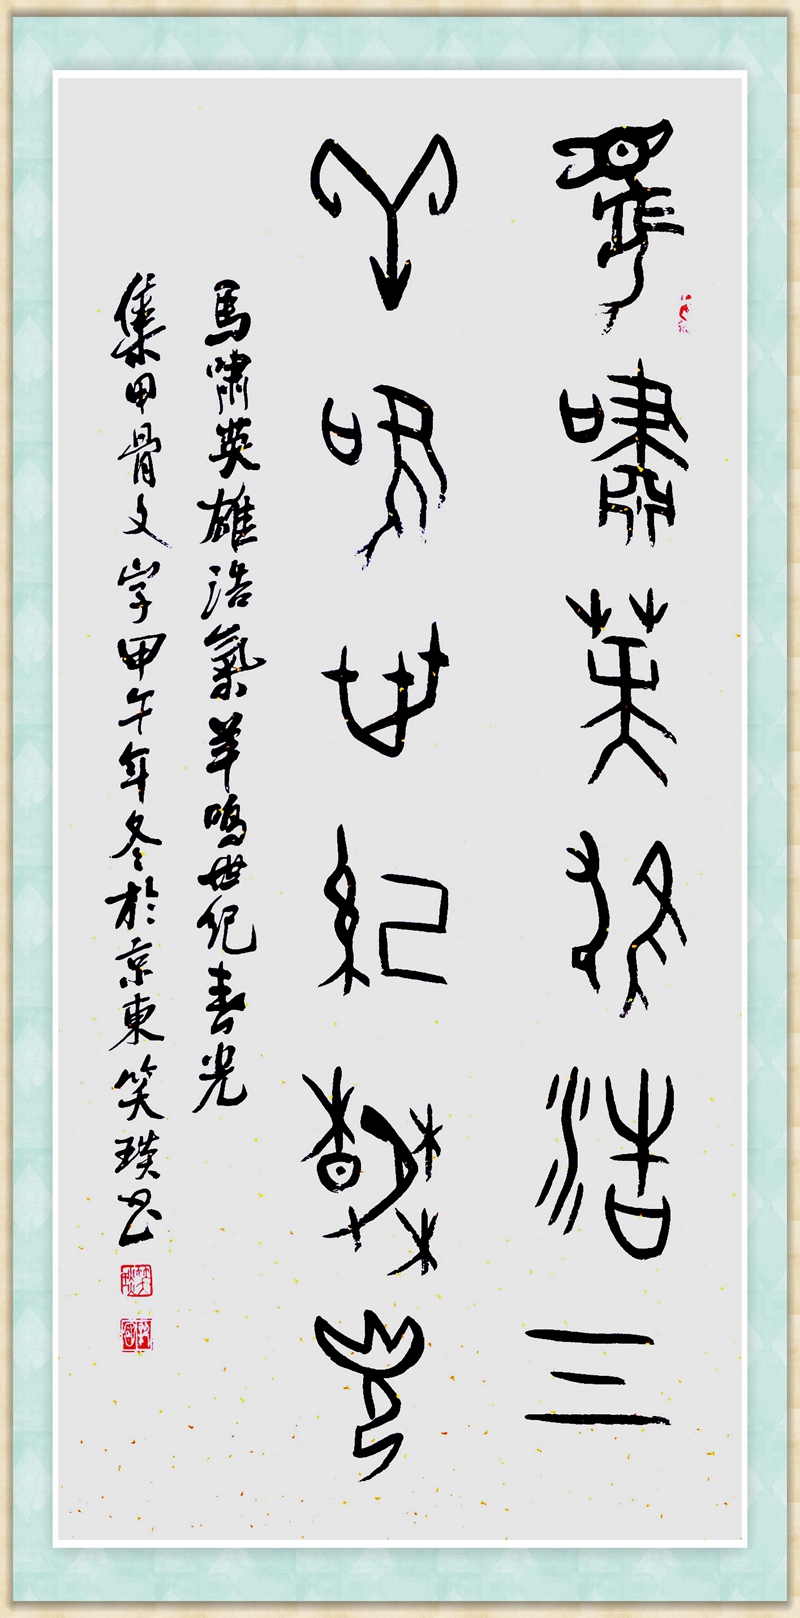 馬嘯英雄浩氣
羊鳴世紀春光
馬嘯英雄浩氣羊鳴世紀春光
集甲骨文字甲午年冬於京東笑琰書